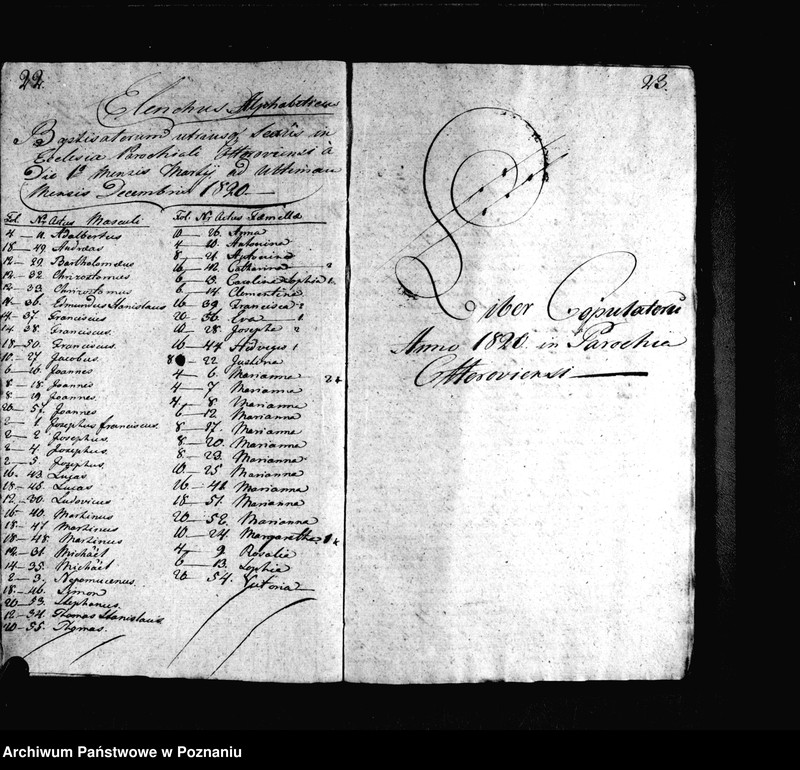 22.
Elenchus Alphabeticus
Baptisatorum utriusq Sexûs in
Ecclesia Parochiali Ottoroviensi à
Die 1ª Mensis Martij ad Ultimam
Mensis Decembris 1820.
Fol. Nr Actus Masculi
4 — 11. Adalbertus
18 — 49. Andreas
12 — 29. Bartholomæus
12 — 32. Chrizostomus
12 — 33. Chrizostomus
14 — 36. Edmundus Stanislaus
14 — 37. Franciscus
14 — 38. Franciscus.
18 — 50. Franciscus.
10 — 27. Jacobus.
6 — 16. Joannes
8 — 18. Joannes
8 — 19. Joannes.
20 — 57. Joannes
2 — 1. Josephus Franciscus.
2 — 2. Josephus.
2 — 4. Josephus.
2 — 5. Josephus.
16 — 43. Lucas
18 — 45. Lucas
12 — 30. Ludovicus
16 — 40. Martinus
18 — 47. Martinus
18 — 48. Martinus
12 — 31. Michaël
14 — 35. Michaël
2 — 3. Nepomucenus.
18 — 46. Simon
20 — 53. Stephanus.
12 — 34. Thomas Stanislaus
20 — 55. Thomas.
Fol. Nr Actus Fæmellæ
10 — 26. Anna
4 — 10. Antonina
8 — 21. Antonina
16 — 42. Catharina 2
6 — 15. Carolina Sophia 1.
6 — 14. Clementina
16 — 39. Francisca 2
20 — 56. Eva 1
10 — 28. Josepha 2
16 — 44. Hedviges 1
8 — 22. Justina
4 — 6. Marianna
4 — 7. Marianna
4 — 8. Marianna
6 — 12. Marianna
8 — 17. Marianna
8 — 20. Marianna
8 — 23. Marianna
10 — 25. Marianna
16 — 41. Marianna
18 — 51. Marianna
20 — 52. Marianna
10 — 24. Margaretha
4 — 9. Rosalia
6 — 13. Sophia
20 — 54. Victoria
23.
Liber Copulatorũ
Anno 1820. in Parochia
Ottoroviensi
Archiwum Państwowe w Poznaniu